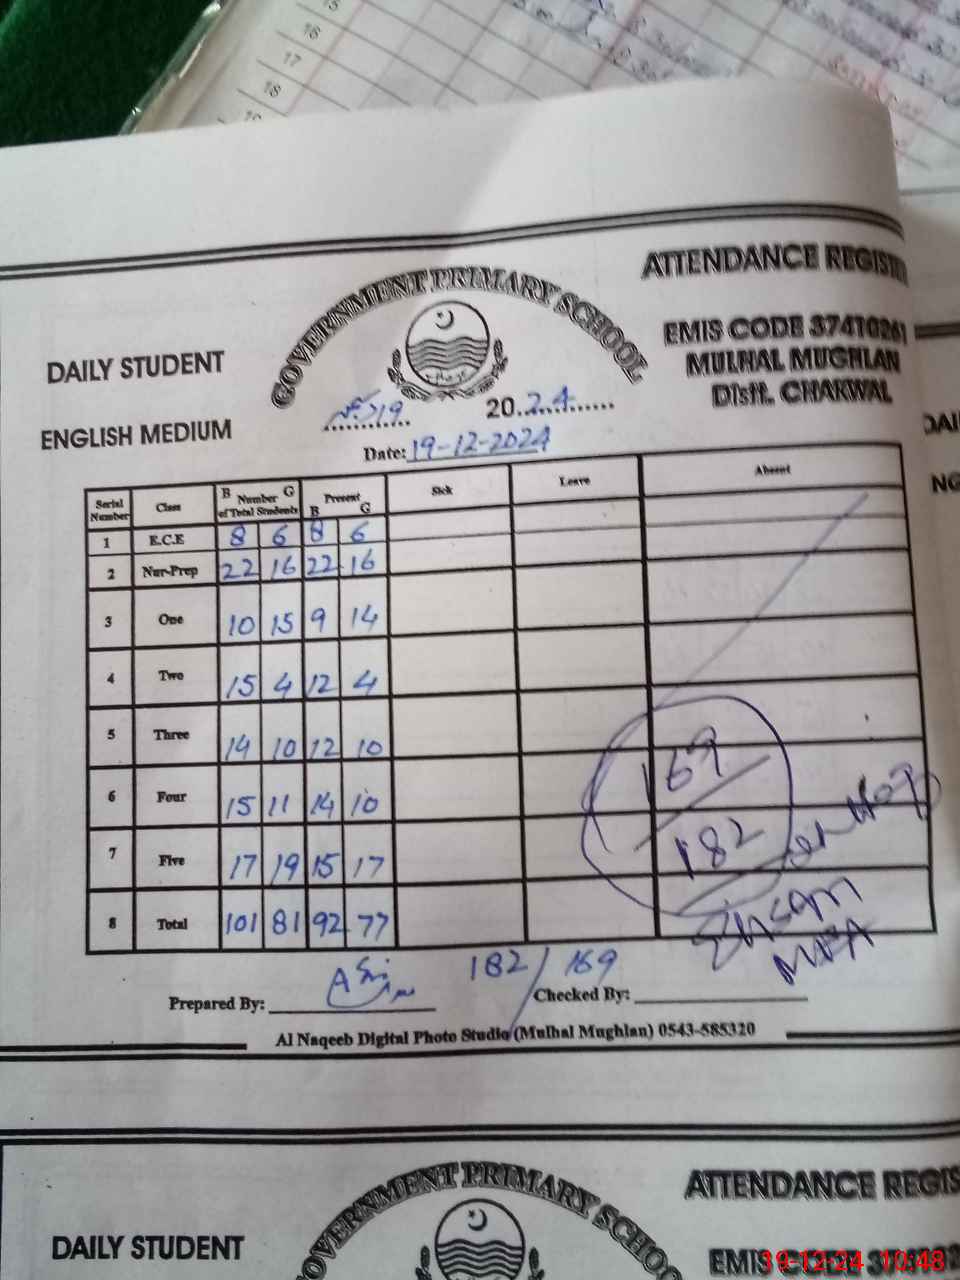 15
16
17
18
ATTENDANCE REGISTER
GOVERNMENT PRIMARY SCHOOL
EMIS CODE 37410261
MULHAL MUGHLAN
Distt. CHAKWAL
DAILY STUDENT
ENGLISH MEDIUM
19 20.24
Date: 19-12-2024
Serial Number Class B Number G of Total Students Present B G Sick Leave Absent
1 E.C.E 8 6 8 6
2 Nur-Prep 22 16 22 16
3 One 10 15 9 14
4 Two 15 4 12 4
5 Three 14 10 12 10
6 Four 15 11 14 10
7 Five 17 19 15 17
8 Total 101 81 92 77
169
182
MEA
182/169
Prepared By: Checked By:
Al Naqeeb Digital Photo Studio (Mulhal Mughlan) 0543-585320
GOVERNMENT PRIMARY SCHOOL
ATTENDANCE REGIS
DAILY STUDENT
EMIS CODE
19-12-24 10:48